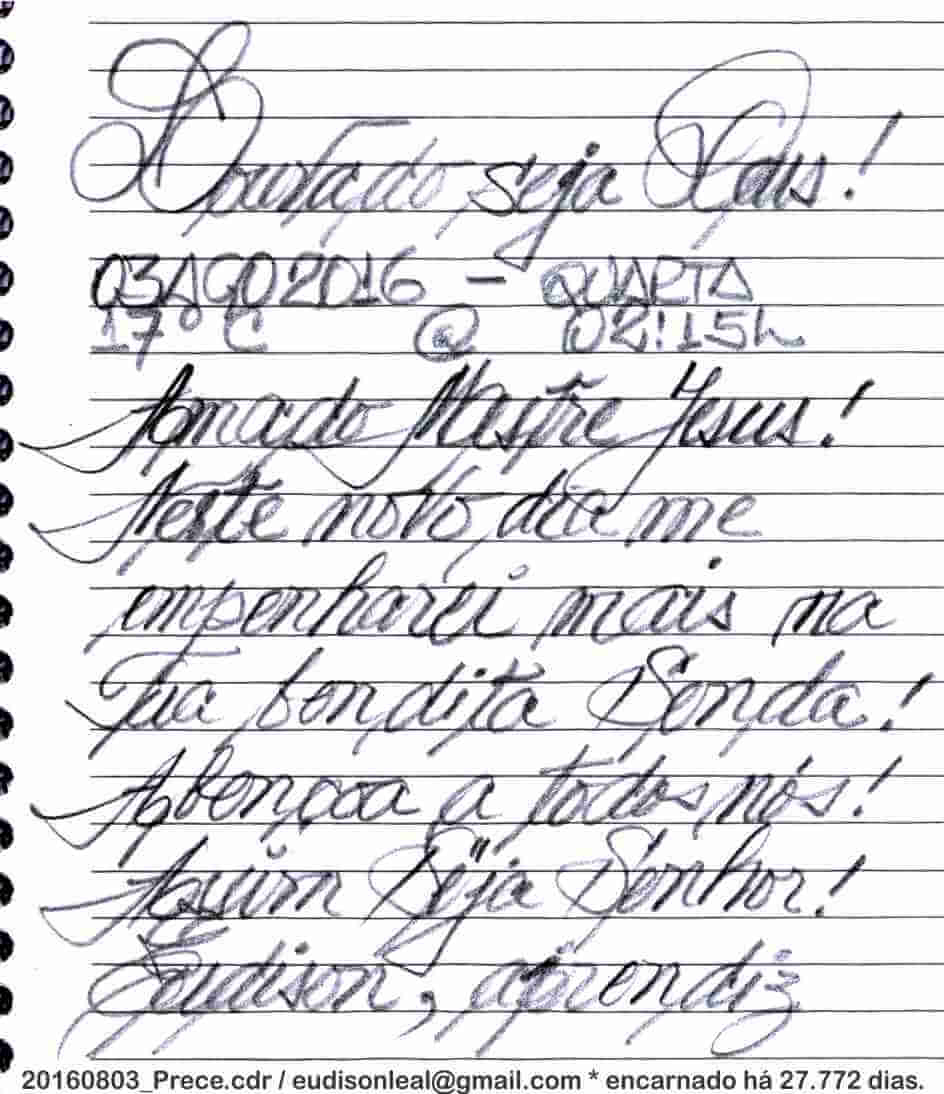 Louvado seja Deus!
03AGO2016 - QUARTA
17° C @ 02:15h
Amado Mestre Jesus!
Neste novo dia me
empenharei mais na
Tua bendita Senda!
Abençoa a todos nós!
Assim Seja Senhor!
Eudison, aprendiz
20160803_Prece.cdr / eudisonleal@gmail.com * encarnado há 27.772 dias.